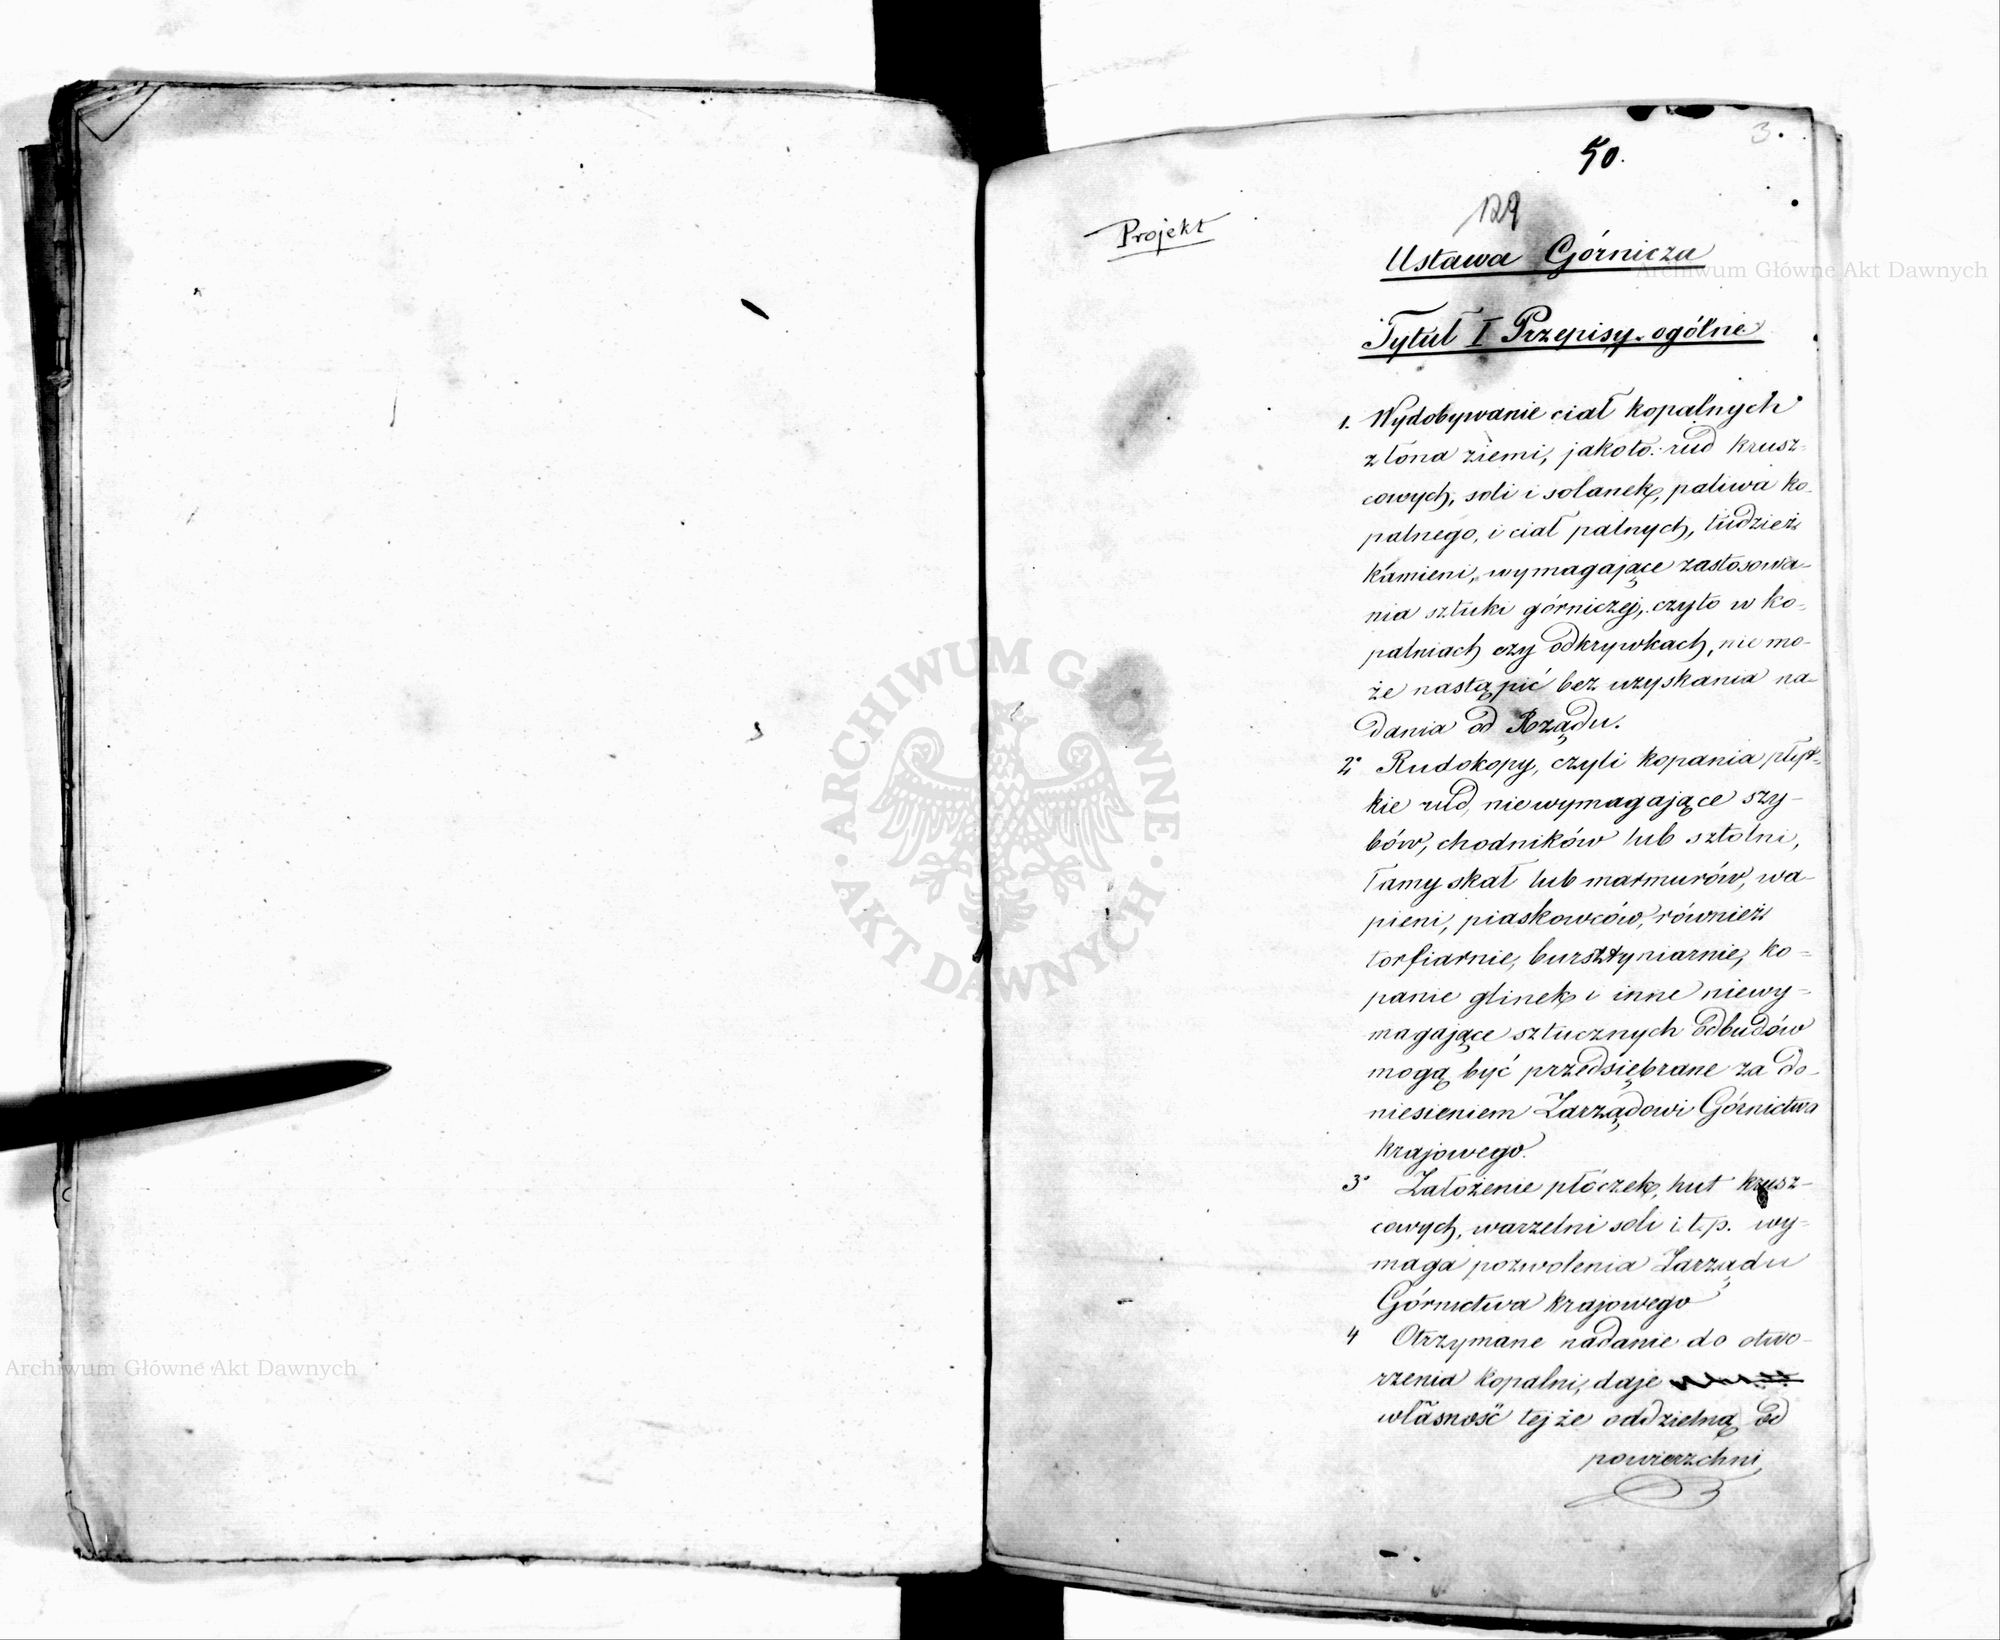 3.
50.
129
Projekt
Ustawa Górnicza
Tytuł I Przepisy ogólne
1. Wydobywanie ciał kopalnych
z łona ziemi, jakoto: rud krusz-
cowych, soli i solanek, paliwa ko-
palnego, i ciał palnych, tudzież
kamieni, wymagające zastosowa-
nia sztuki górniczej, czyto w ko-
palniach czy odkrywkach, nie mo-
że nastąpić bez uzyskania na-
dania od Rządu.
2° Rudokopy, czyli kopania płyt-
kie rud, niewymagające szy-
bów, chodników lub sztolni,
łamy skał lub marmurów, wa-
pieni, piaskowców, również
torfiarnie, bursztyniarnie, ko-
panie glinek i inne niewy-
magające sztucznych odbudów
mogą być przedsiębrane za do-
niesieniem Zarządowi Górnictwa
krajowego.
3° Założenie płóczek, hut krusz-
cowych, warzelni soli i.t.p. wy-
maga pozwolenia Zarządu
Górnictwa krajowego
4 Otrzymane nadanie do otwo-
rzenia kopalni, daje
własność tejże oddzielną od
powierzchni
Archiwum Główne Akt Dawnych
ARCHIWUM GŁÓWNE
AKT DAWNYCH
Archiwum Główne Akt Dawnych